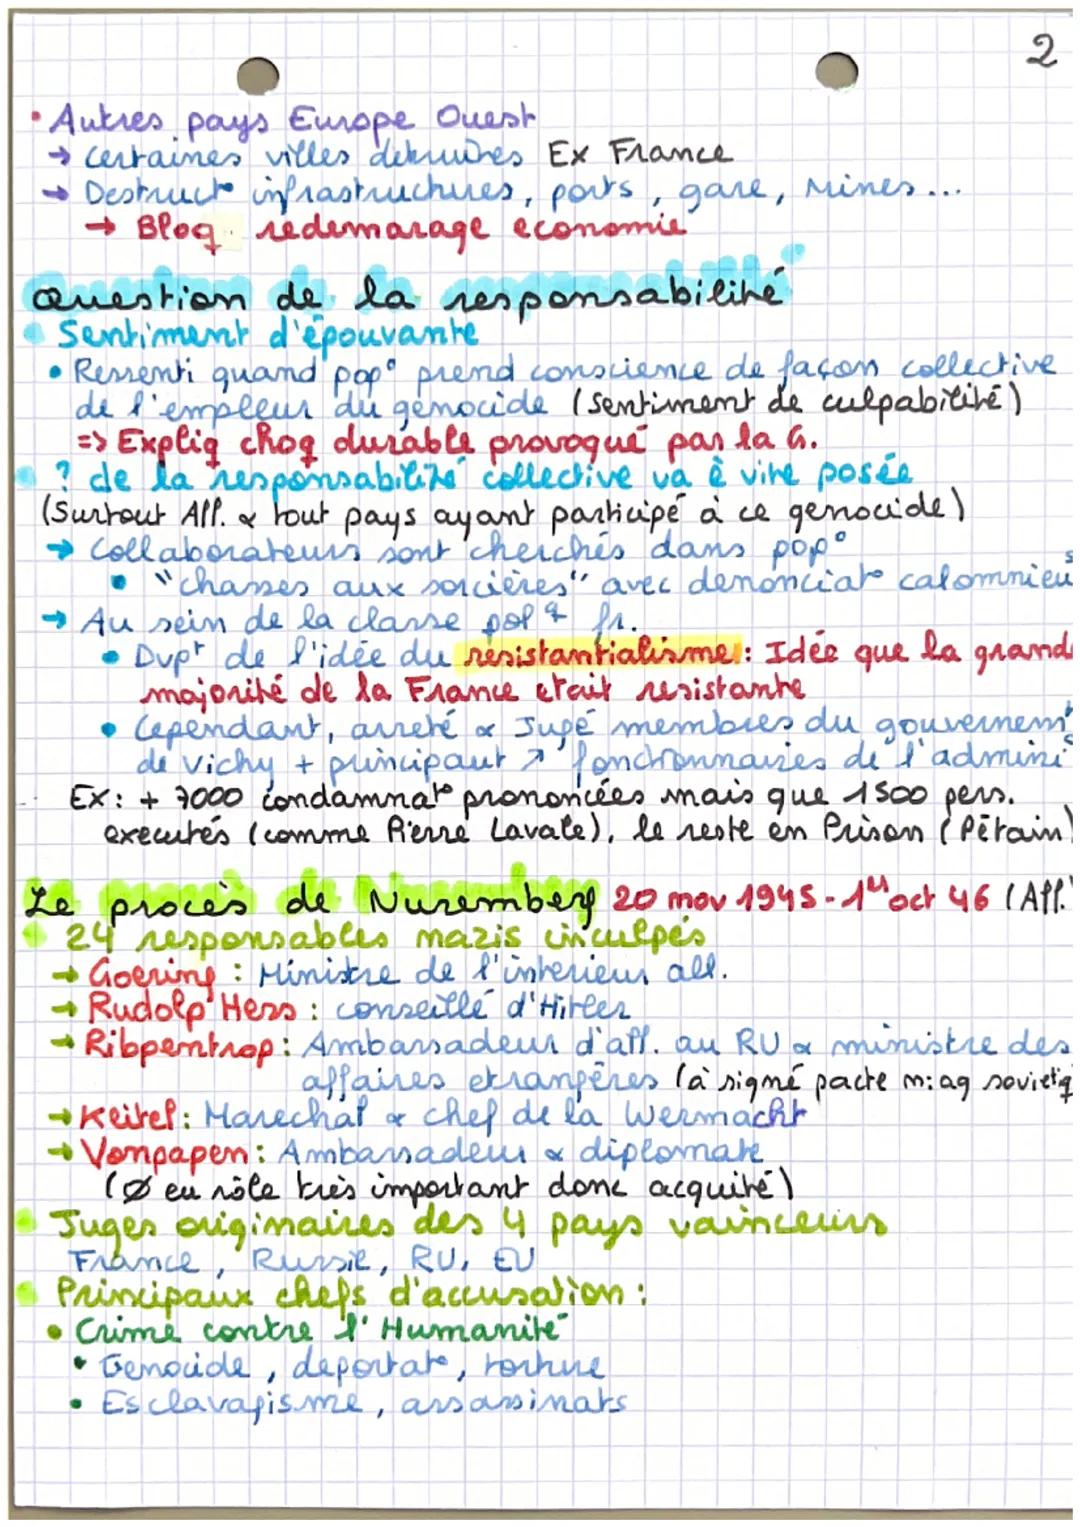 2
• Autres pays Europe Ouest
→ Certaines villes detruires Ex France
→ Destruct° infrastructures, ports, gare, Mines...
→ Bloq redemarage economie
Question de la responsabilité
• Sentiment d'épouvante
• Ressenti quand pop° prend conscience de façon collective
de l'empleur du génocide (sentiment de culpabilité)
=> Expliq choq durable provoqué par la G.
• ? de la responsabilité collective va ê vite posée
(Surtout All. & tout pays ayant participé à ce genocide)
→ Collaborateurs sont cherchés dans pop°
• "chasses aux sorcières" avec denonciat° calomnieus
→ Au sein de la classe pol q fr.
• Dvpt de l'idée du résistantialisme : Idée que la grande
majorité de la France etait resistante
• Cependant, arreté & Jugé membres du gouvernemt
de Vichy + principaut ↗ fonctionnaires de l'admini
Ex : + 7000 condamnat° prononcées mais que 1500 pers.
executés (comme Pierre Lavale), le reste en Prison (Pétain)
Le procès de Nuremberg 20 nov 1945 - 1er oct 46 (All.
• 24 responsables nazis inculpés
→ Goering : Ministre de l'interieur all.
→ Rudolp Hess : conseillé d'Hitler
→ Ribpentrop : Ambassadeur d'all. au RU & ministre des
affaires etrangères (à signé pacte m: ag sovietiq
→ Keitel : Marechal & chef de la Wermacht
→ Vonpapen : Ambassadeur & diplomate
(Ø eu rôle très important donc acquité)
• Juges originaires des 4 pays vainceurs
France, Russie, RU, EU
• Principaux chefs d'accusation :
• Crime contre l'Humanité
• Genocide, deportat°, torture
• Esclavagisme, assassinats